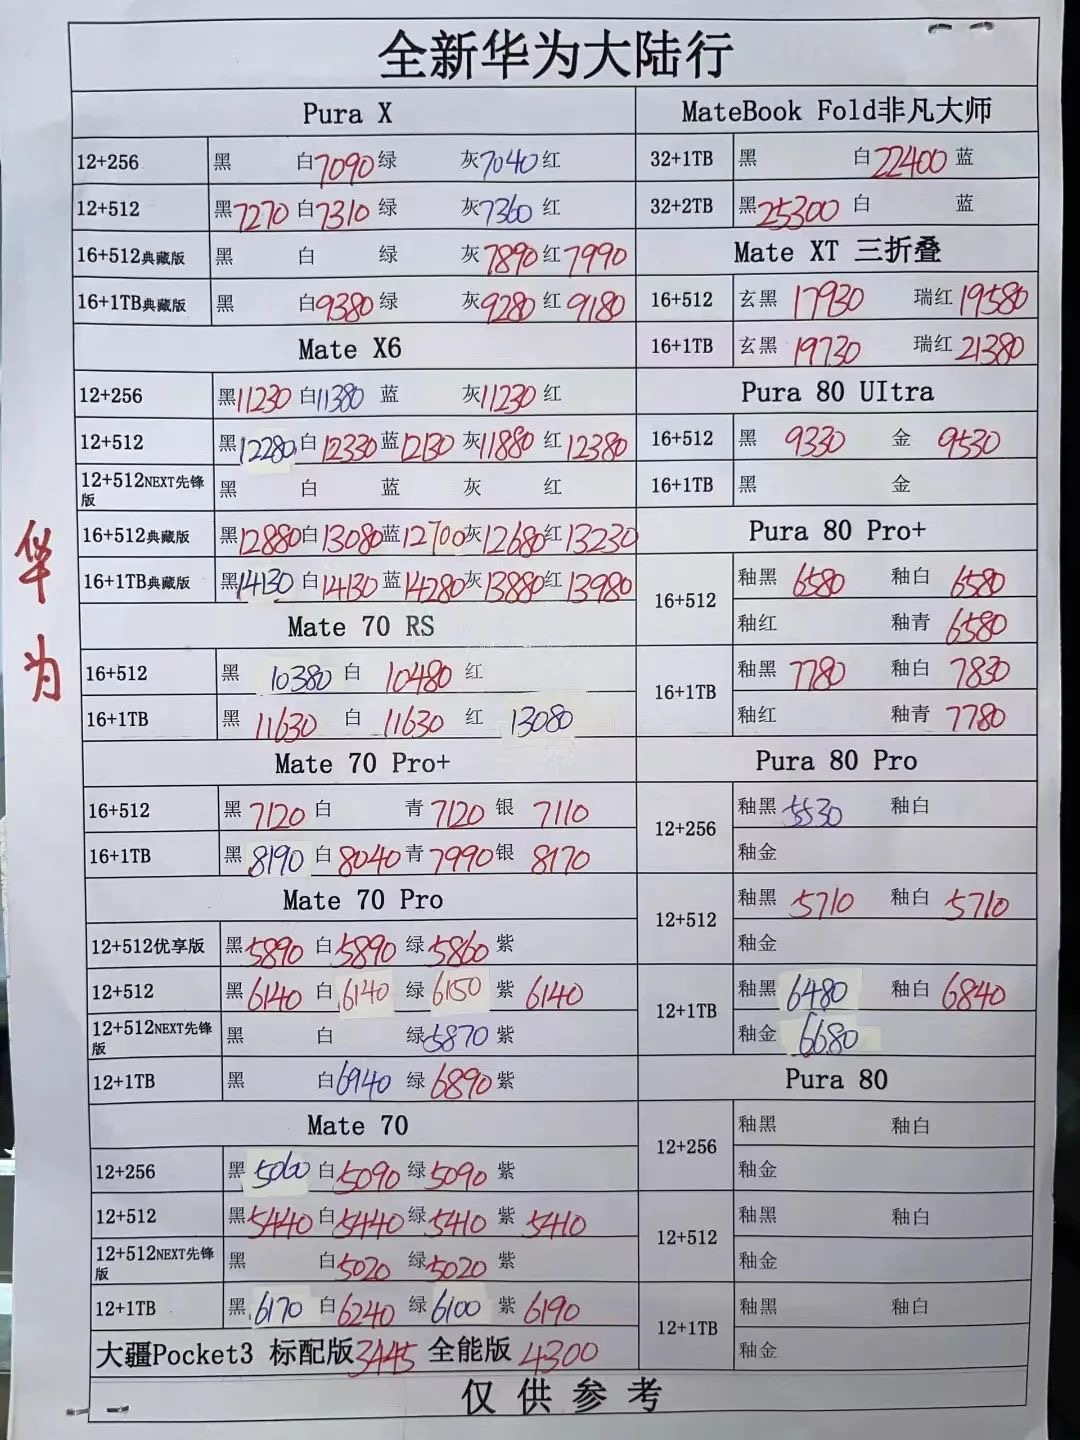 全新华为大陆行
Pura X
12+256 黑 白7090 绿 灰7040 红
12+512 黑7270 白7310 绿 灰7360 红
16+512典藏版 黑 白 绿 灰7890 红7990
16+1TB典藏版 黑 白9380 绿 灰9280 红9180
Mate X6
12+256 黑11230 白11380 蓝 灰11230 红
12+512 黑12280 白12330 蓝12130 灰11880 红12380
12+512NEXT先锋版 黑 白 蓝 灰 红
16+512典藏版 黑12880 白13080 蓝12700 灰12680 红13230
16+1TB典藏版 黑14130 白14130 蓝14280 灰13880 红13980
Mate 70 RS
16+512 黑 10380 白 10480 红
16+1TB 黑 11630 白 11630 红 13080
Mate 70 Pro+
16+512 黑 7120 白 青 7120 银 7110
16+1TB 黑 8190 白 8040 青 7990 银 8170
Mate 70 Pro
12+512优享版 黑5890 白5890 绿5860 紫
12+512 黑6140 白6140 绿6150 紫 6140
12+512NEXT先锋版 黑 白 绿5870 紫
12+1TB 黑 白6940 绿6890 紫
Mate 70
12+256 黑 5060 白5090 绿5090 紫
12+512 黑5440 白5440 绿5410 紫 5410
12+512NEXT先锋版 黑 白5020 绿5020 紫
12+1TB 黑6170 白6240 绿6100 紫 6190
大疆Pocket3 标配版3445 全能版 4300
MateBook Fold非凡大师
32+1TB 黑 白22400 蓝
32+2TB 黑25300 白 蓝
Mate XT 三折叠
16+512 玄黑 17930 瑞红19580
16+1TB 玄黑 19730 瑞红21380
Pura 80 UItra
16+512 黑 9330 金 9530
16+1TB 黑 金
Pura 80 Pro+
16+512 釉黑 6580 釉白 6580
釉红 釉青 6580
16+1TB 釉黑 7780 釉白 7830
釉红 釉青 7780
Pura 80 Pro
12+256 釉黑 5530 釉白
釉金
12+512 釉黑 5710 釉白 5710
釉金
12+1TB 釉黑 6480 釉白 6840
釉金 6680
Pura 80
12+256 釉黑 釉白
釉金
12+512 釉黑 釉白
釉金
12+1TB 釉黑 釉白
釉金
仅供参考
华为